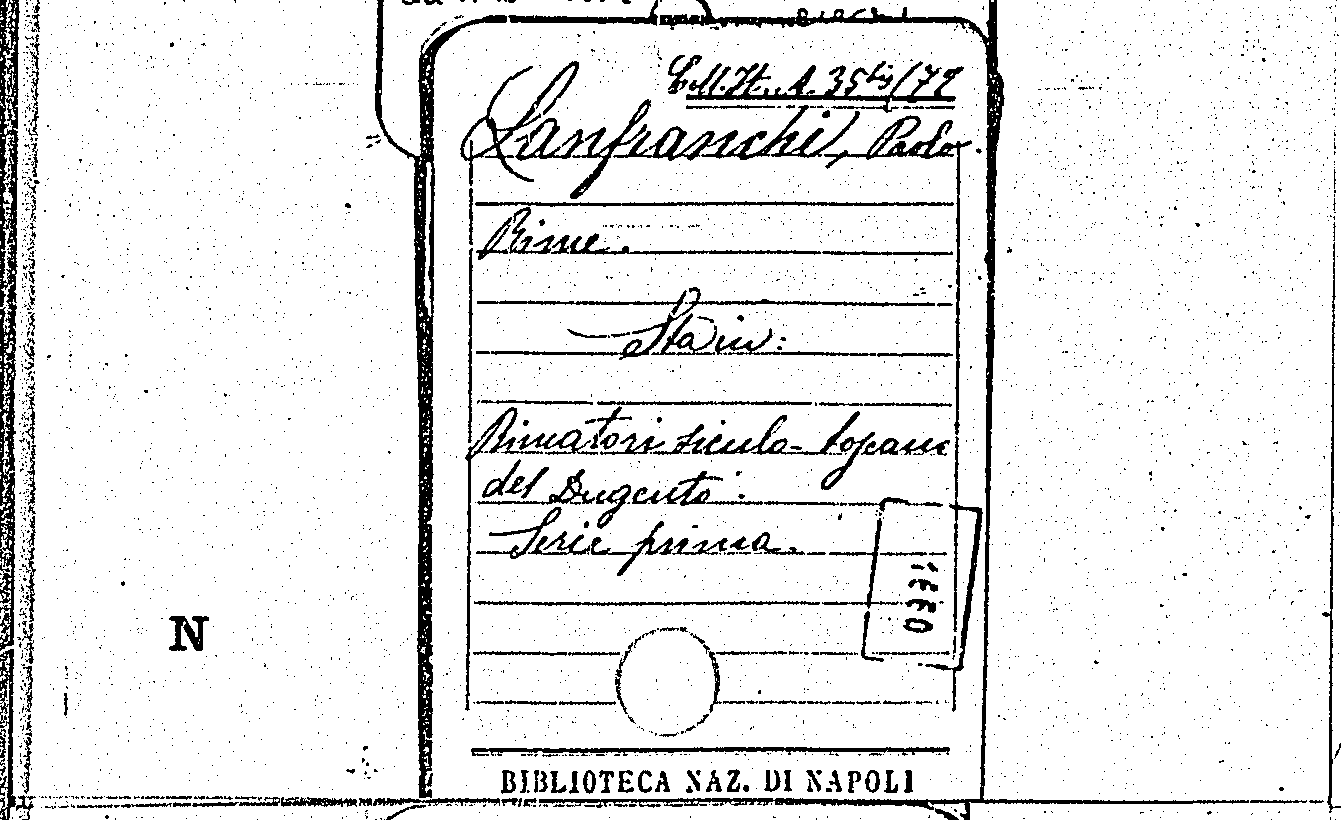 Coll. It. A. 35 bis/79
Lanfranchi, Paolo.
Rime.
Sta in:
Rimatori siculo-toscani
del Dugento.
Serie prima.
N
BIBLIOTECA NAZ. DI NAPOLI